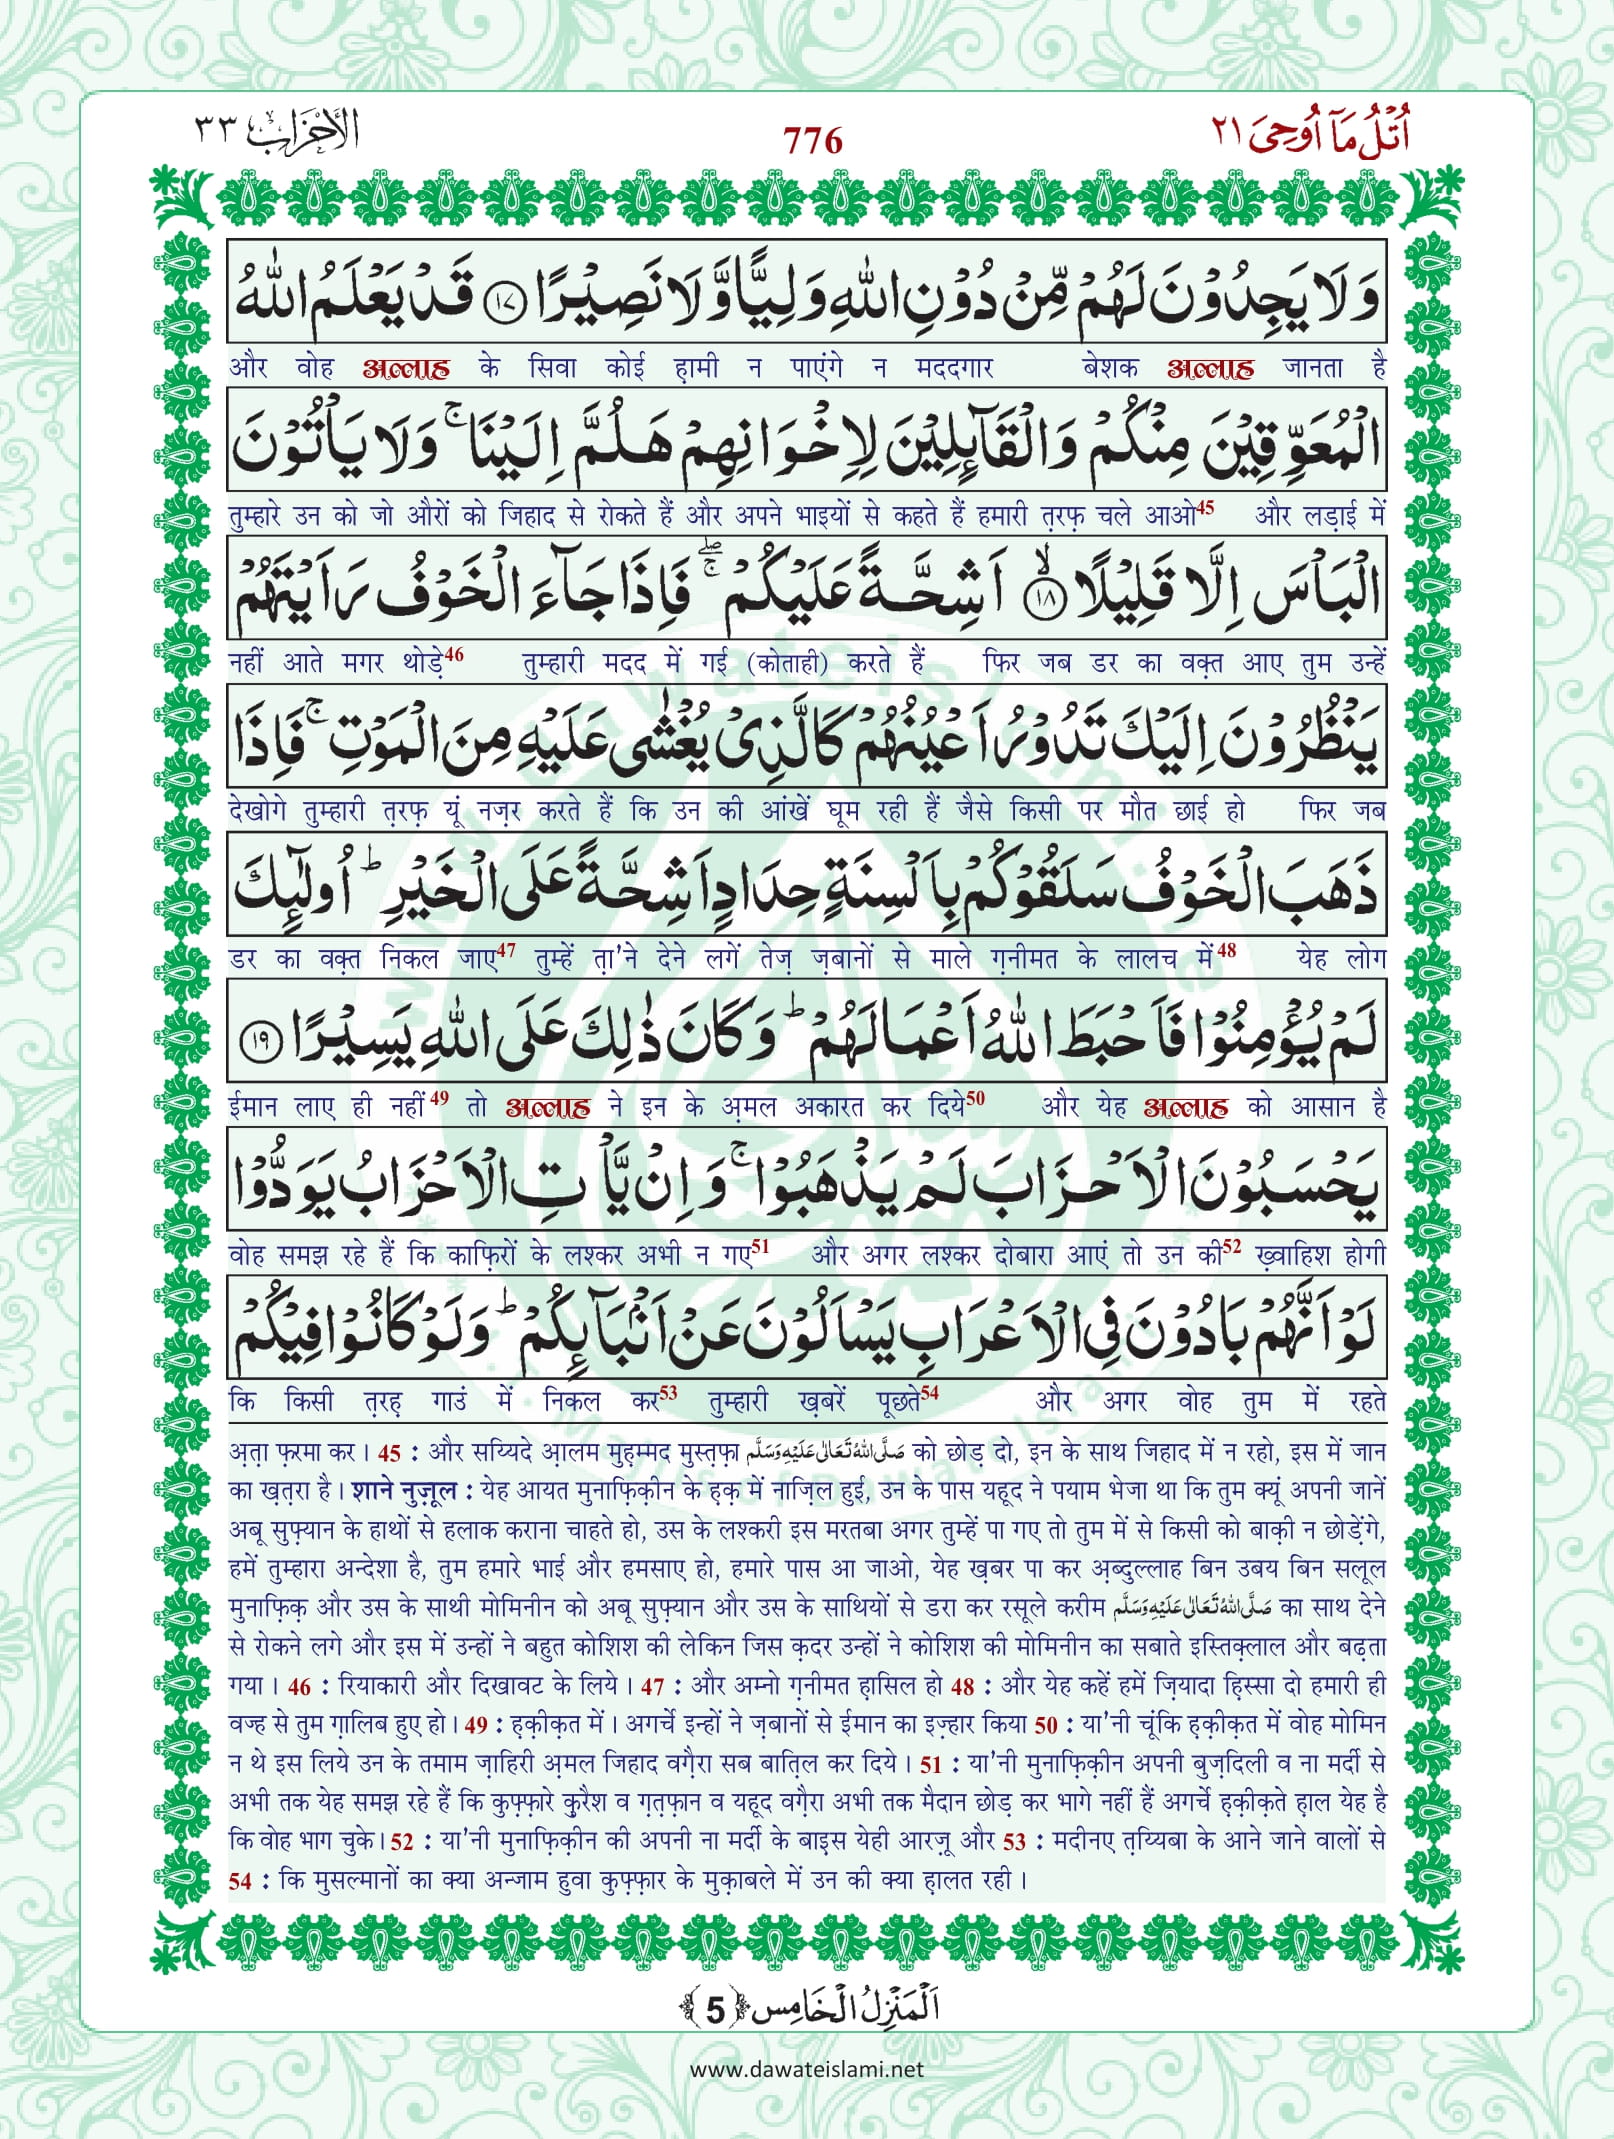 الاحزاب ٣٣
776
اُتْلُ مَاۤ اُوْحِیَ ٢١
وَ لَا یَجِدُوْنَ لَهُمْ مِّنْ دُوْنِ اللّٰهِ وَلِیًّا وَّ لَا نَصِیْرًا ﴿١٧﴾ قَدْ یَعْلَمُ اللّٰهُ
और वोह अल्लाह के सिवा कोई ह़ामी न पाएंगे न मददगार बेशक अल्लाह जानता है
الْمُعَوِّقِیْنَ مِنْكُمْ وَ الْقَآىٕلِیْنَ لِاِخْوَانِهِمْ هَلُمَّ اِلَیْنَاۚ وَ لَا یَاْتُوْنَ
तुम्हारे उन को जो औरों को जिहाद से रोकते हैं और अपने भाइयों से कहते हैं हमारी त़रफ़ चले आओ45 और लड़ाई में
الْبَاْسَ اِلَّا قَلِیْلًاۙ ﴿١٨﴾ اَشِحَّةً عَلَیْكُمْ ۚۖ فَاِذَا جَآءَ الْخَوْفُ رَاَیْتَهُمْ
नहीं आते मगर थोड़े46 तुम्हारी मदद में गई (कोताही) करते हैं फिर जब डर का वक़्त आए तुम उन्हें
یَنْظُرُوْنَ اِلَیْكَ تَدُوْرُ اَعْیُنُهُمْ كَالَّذِیْ یُغْشٰى عَلَیْهِ مِنَ الْمَوْتِۚ فَاِذَا
देखोगे तुम्हारी त़रफ़ यूं नज़र करते हैं कि उन की आंखें घूम रही हैं जैसे किसी पर मौत छाई हो फिर जब
ذَهَبَ الْخَوْفُ سَلَقُوْكُمْ بِاَلْسِنَةٍ حِدَادٍ اَشِحَّةً عَلَى الْخَیْرِؕ اُولٰٓىٕكَ
डर का वक़्त निकल जाए47 तुम्हें त़ा'ने देने लगें तेज़ ज़बानों से माले ग़नीमत के लालच में48 येह लोग
لَمْ یُؤْمِنُوْا فَاَحْبَطَ اللّٰهُ اَعْمَالَهُمْؕ وَ كَانَ ذٰلِكَ عَلَى اللّٰهِ یَسِیْرًا ﴿١٩﴾
ईमान लाए ही नहीं49 तो अल्लाह ने इन के अ़मल अकारत कर दिये50 और येह अल्लाह को आसान है
یَحْسَبُوْنَ الْاَحْزَابَ لَمْ یَذْهَبُوْاۚ وَ اِنْ یَّاْتِ الْاَحْزَابُ یَوَدُّوْا
वोह समझ रहे हैं कि काफ़िरों के लश्कर अभी न गए51 और अगर लश्कर दोबारा आएं तो उन की52 ख़्वाहिश होगी
لَوْ اَنَّهُمْ بَادُوْنَ فِی الْاَعْرَابِ یَسْاَلُوْنَ عَنْ اَنْۢبَآىٕكُمْؕ وَ لَوْ كَانُوْا فِیْكُمْ
कि किसी त़रह़ गाउं में निकल कर53 तुम्हारी ख़बरें पूछते54 और अगर वोह तुम में रहते
अ़त़ा फ़रमा कर। 45 : और सय्यिदे आ़लम मुह़म्मद मुस्त़फ़ा صَلَّى اللّٰهُ تَعَالٰى عَلَیْهِ وَسَلَّم को छोड़ दो, इन के साथ जिहाद में न रहो, इस में जान
का ख़त़रा है। शाने नुज़ूल : येह आयत मुनाफ़िक़ीन के ह़क़ में नाज़िल हुई, उन के पास यहूद ने पयाम भेजा था कि तुम क्यूं अपनी जानें
अबू सुफ़्यान के हाथों से हलाक कराना चाहते हो, उस के लश्करी इस मरतबा अगर तुम्हें पा गए तो तुम में से किसी को बाक़ी न छोड़ेंगे,
हमें तुम्हारा अन्देशा है, तुम हमारे भाई और हमसाए हो, हमारे पास आ जाओ, येह ख़बर पा कर अ़ब्दुल्लाह बिन उबय बिन सलूल
मुनाफ़िक़ और उस के साथी मोमिनीन को अबू सुफ़्यान और उस के साथियों से डरा कर रसूले करीम صَلَّى اللّٰهُ تَعَالٰى عَلَیْهِ وَسَلَّم का साथ देने
से रोकने लगे और इस में उन्हों ने बहुत कोशिश की लेकिन जिस क़दर उन्हों ने कोशिश की मोमिनीन का सबाते इस्तिक़्लाल और बढ़ता
गया। 46 : रियाकारी और दिखावट के लिये। 47 : और अम्नो ग़नीमत ह़ासिल हो 48 : और येह कहें हमें ज़ियादा हि़स्सा दो हमारी ही
वज्ह से तुम ग़ालिब हुए हो। 49 : ह़क़ीक़त में। अगर्चे इन्हों ने ज़बानों से ईमान का इज़्हार किया 50 : या'नी चूंकि ह़क़ीक़त में वोह मोमिन
न थे इस लिये उन के तमाम ज़ाहिरी अ़मल जिहाद वग़ैरा सब बात़िल कर दिये। 51 : या'नी मुनाफ़िक़ीन अपनी बुज़दिली व ना मर्दी से
अभी तक येह समझ रहे हैं कि कुफ़्फ़ारे क़ुरैश व ग़त़फ़ान व यहूद वग़ैरा अभी तक मैदान छोड़ कर भागे नहीं हैं अगर्चे ह़क़ीक़ते ह़ाल येह है
कि वोह भाग चुके। 52 : या'नी मुनाफ़िक़ीन की अपनी ना मर्दी के बाइस येही आरज़ू और 53 : मदीनए त़य्यिबा के आने जाने वालों से
54 : कि मुसल्मानों का क्या अन्जाम हुवा कुफ़्फ़ार के मुक़ाबले में उन की क्या ह़ालत रही।
اَلْمَنْزِلُ الْخَامِس ﴿5﴾
www.dawateislami.net